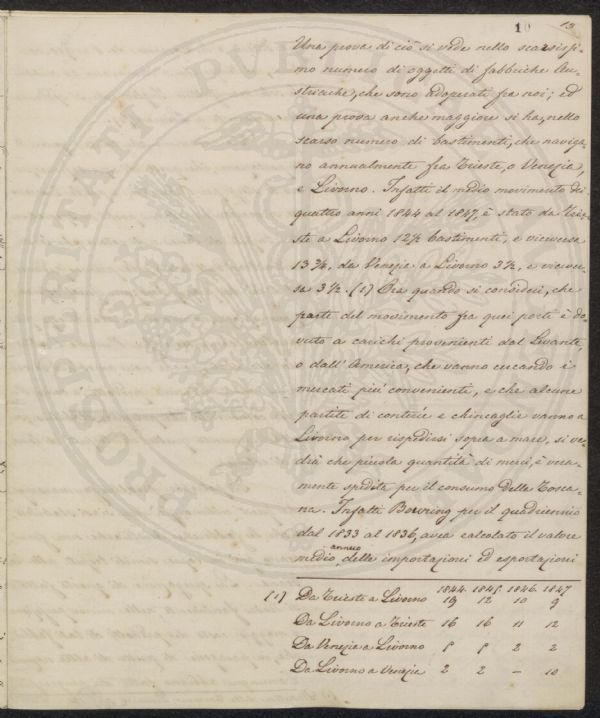 10 13
Una prova di ciò si vede nello scarsissi-
mo numero di oggetti di fabbriche Au-
striache, che sono adoperati fra noi; ed
una prova anche maggiore si ha, nello
scarso numero di bastimenti, che naviga-
no annualmente fra Trieste, o Venezia,
e Livorno. Infatti il medio movimento dei
quattro anni 1844 al 1847, è stato da Trie-
ste a Livorno 12½ bastimenti, e viceversa
13¾, da Venezia a Livorno 3½, e vicever-
sa 3½. (1) Ora quando si consideri, che
parte del movimento fra quei porti è do-
vuto a carichi provenienti dal Levante,
o dall'America, che vanno cercando i
mercati più convenienti, e che alcune
partite di conterie e chincaglie vanno a
Livorno per rispedirsi sopra a mare, si ve-
drà che piccola quantità di merci, è vera-
mente spedita per il consumo della Tosca-
na. Infatti Bowring per il quadriennio
dal 1833 al 1836, avea calcolato il valore
medio annuo delle importazioni ed esportazioni
1844. 1845. 1846. 1847
(1) Da Trieste a Livorno 19 12 10 9
Da Livorno a Trieste 16 16 11 12
Da Venezia a Livorno 5 5 2 2
Da Livorno a Venezia 2 2 — 10
PROSPERITATI PUBLICAE